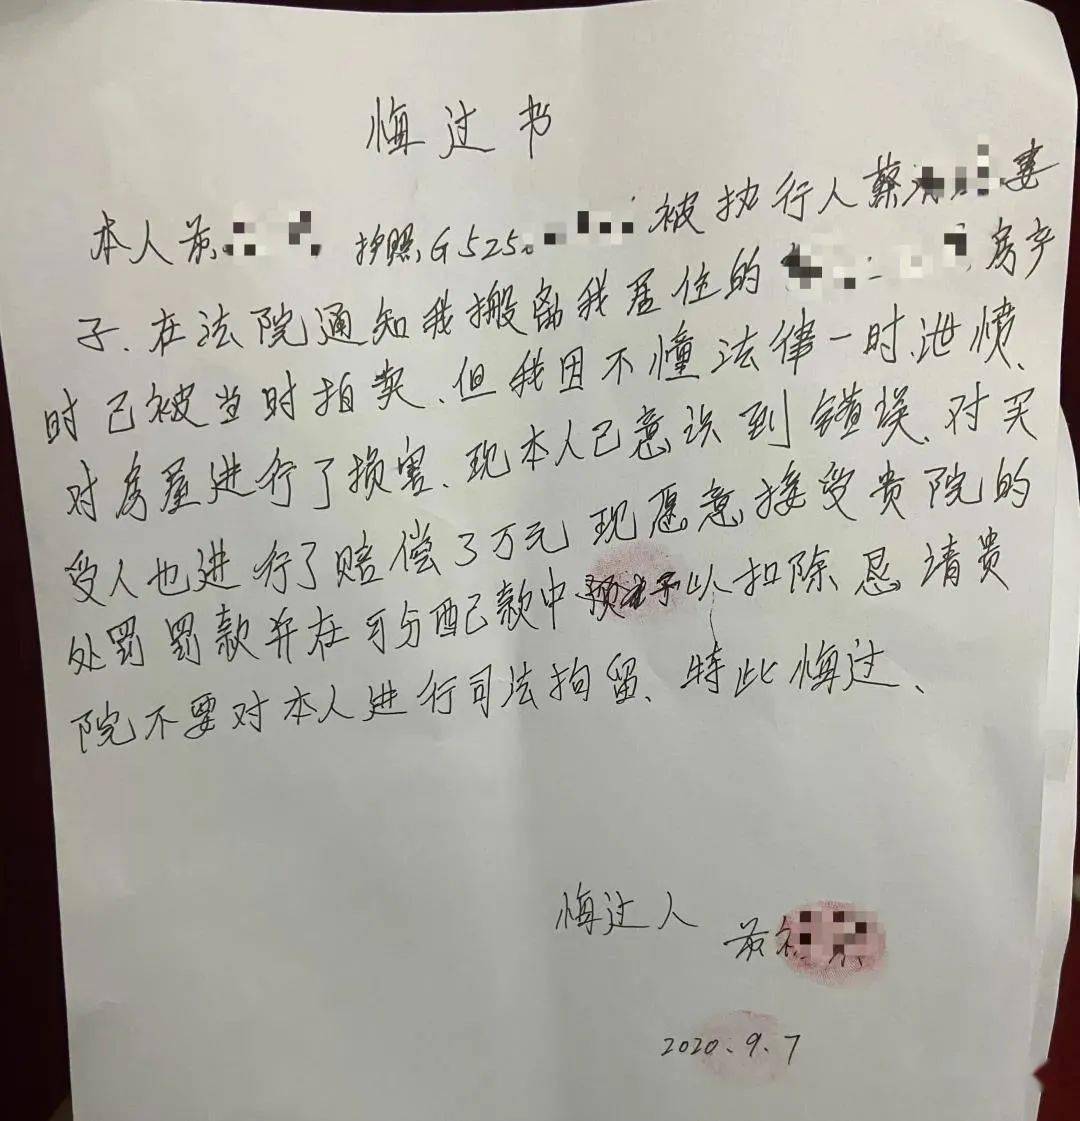 悔过书
本人 护照G525 被执行人蔡 妻
子、在法院通知我搬离我居住的 房产
时已被当时拍卖、但我因不懂法律一时、泄愤、
对房屋进行了损害、现本人已意识到错误、对买
受人也进行了赔偿3万元现愿意接受贵院的
处罚罚款并在可分配款中 予以扣除恳请贵
院不要对本人进行司法拘留、特此悔过、
悔过人
2020、9、7